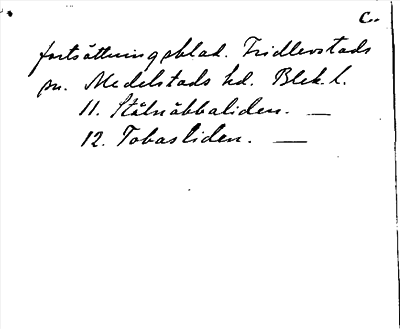 C.
fortsättningsblad. Fridlevstads
sn. Medelstads hd. Blek. l.
11. Stålnäbbaliden. —
12. Tobasliden. —